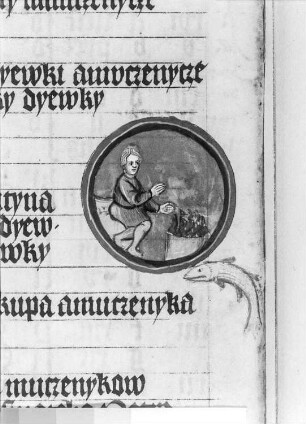 amuczenycze
yewki amuczenycze
y dyewky
tyna
dyew-
wky
kupa amuczenyka
muczenykow